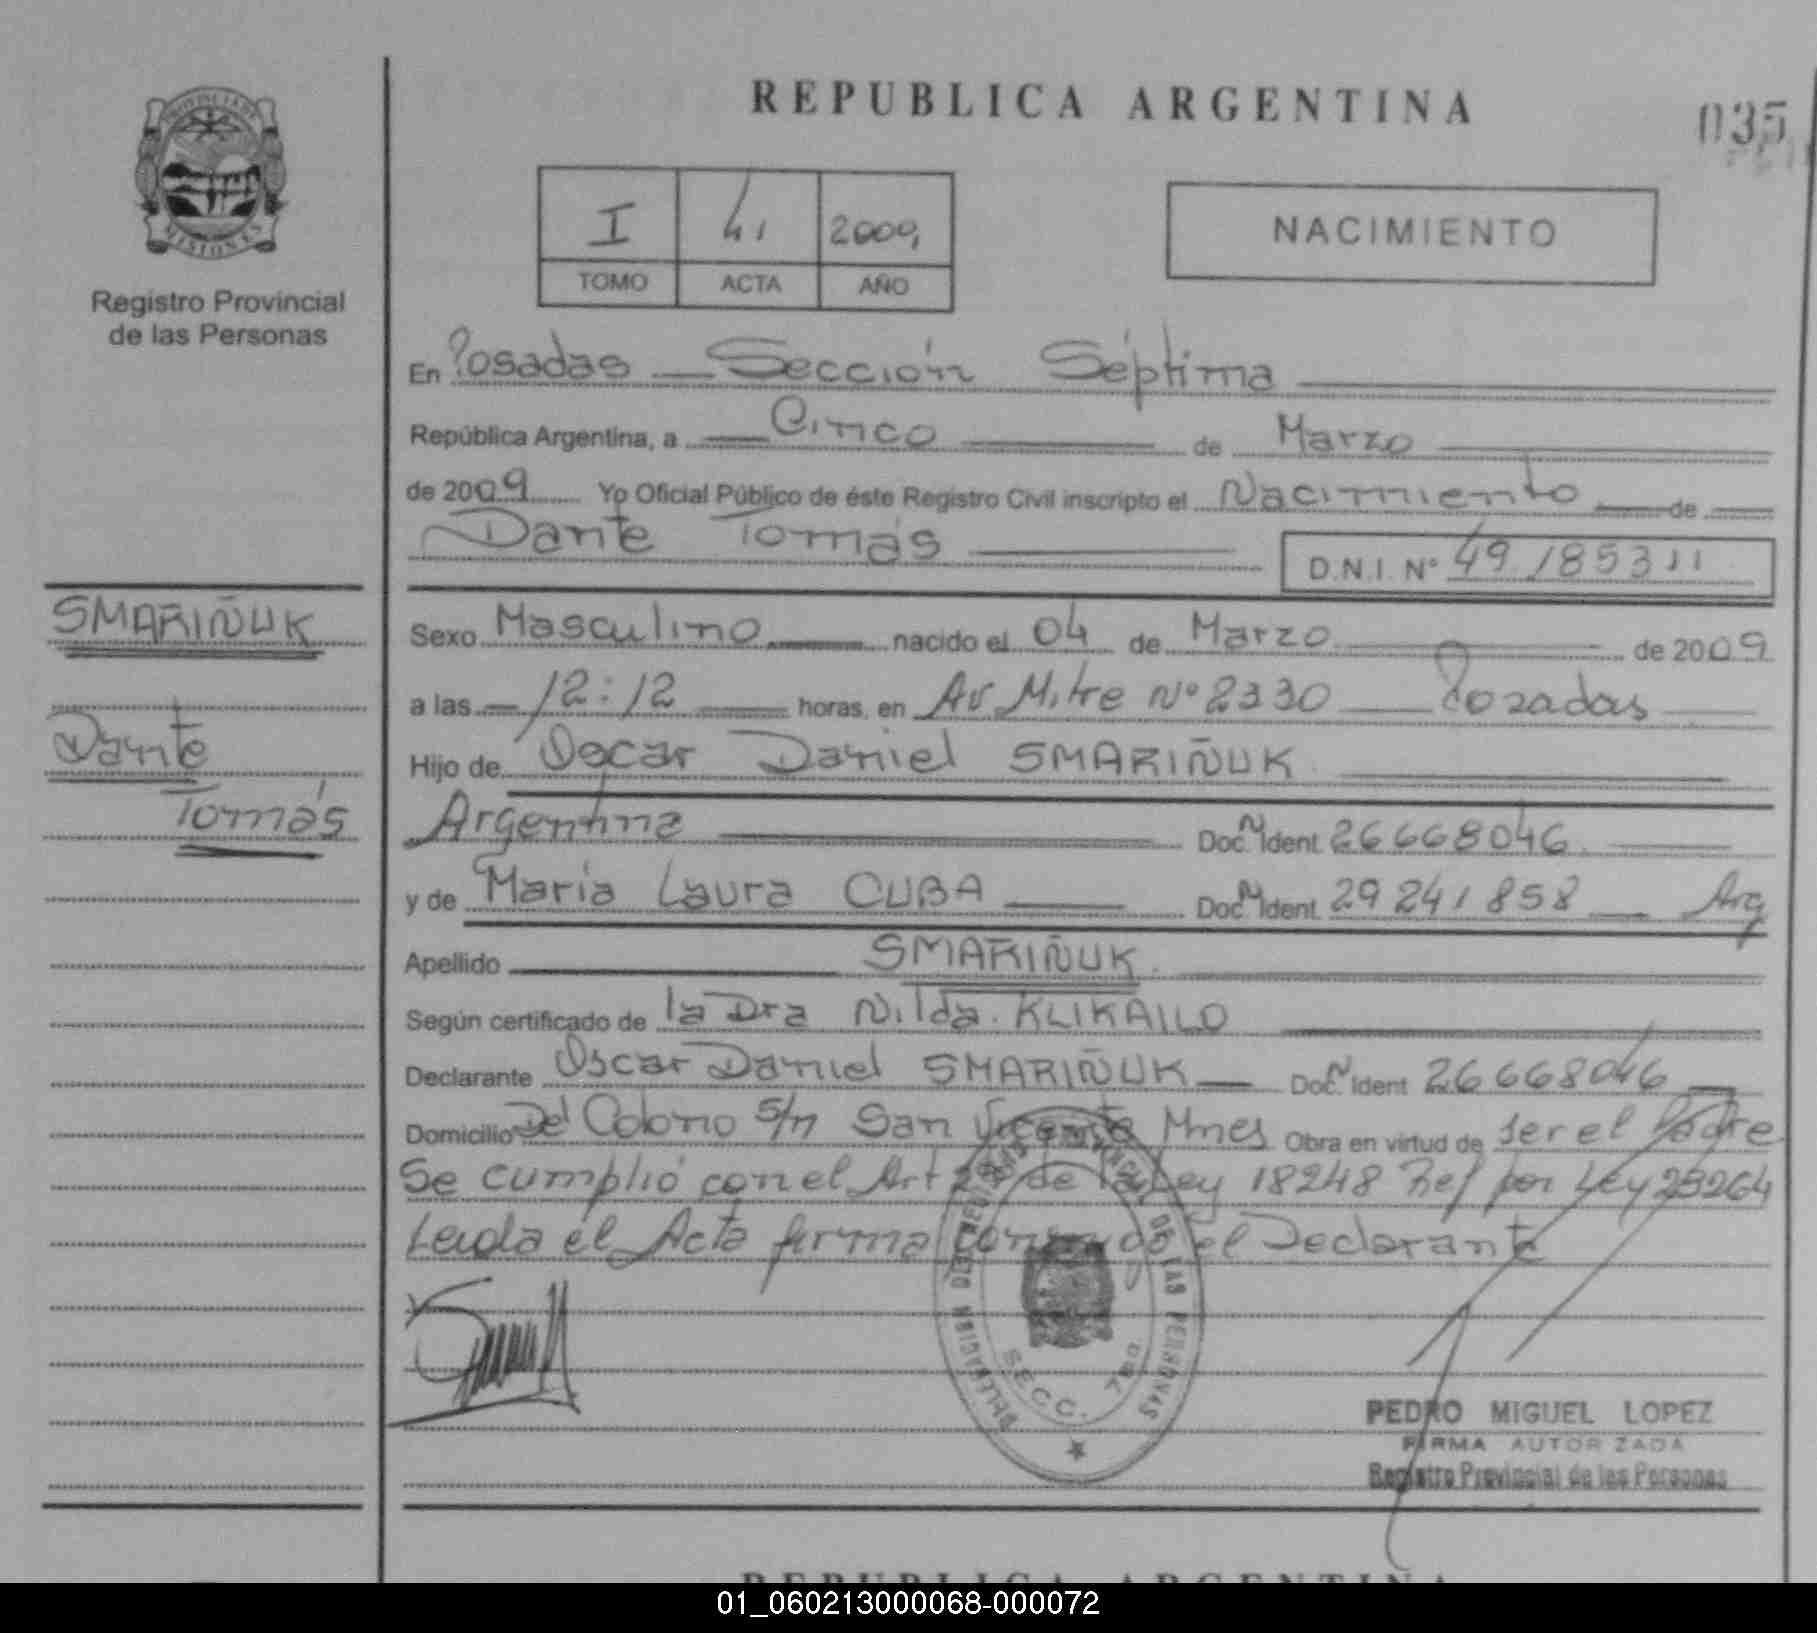 REPUBLICA ARGENTINA
035
PROVINCIA DE
MISIONES
Registro Provincial
de las Personas
I 41 2009
TOMO ACTA AÑO
NACIMIENTO
En Posadas Sección Séptima
República Argentina, a Cinco de Marzo
de 2009 Yo Oficial Público de éste Registro Civil inscripto el Nacimiento de
Dante Tomás D.N.I. Nº 49185311
SMARIÑUK
Dante
Tomás
Sexo Masculino nacido el 04 de Marzo de 2009
a las 12:12 horas, en Av Mitre Nº 2330 Posadas
Hijo de Oscar Daniel SMARIÑUK
Argentina Doc. N Ident 26668046
y de María Laura CUBA Doc. N Ident 29241858 Arg
Apellido SMARIÑUK
Según certificado de la Dra Nilda KLIKAILO
Declarante Oscar Daniel SMARIÑUK Doc. N Ident 26668046
Domicilio Del Colono S/n San Vicente Mnes Obra en virtud de ser el Padre
Se cumplió con el Art de la Ley 18248 Ref por Ley 23264
Leida el Acta firma el Declarante
DE LAS PERSONAS
SECC. 7ma
PEDRO MIGUEL LOPEZ
FIRMA AUTORIZADA
Registro Provincial de las Personas
REPUBLICA ARGENTINA
01_060213000068-000072